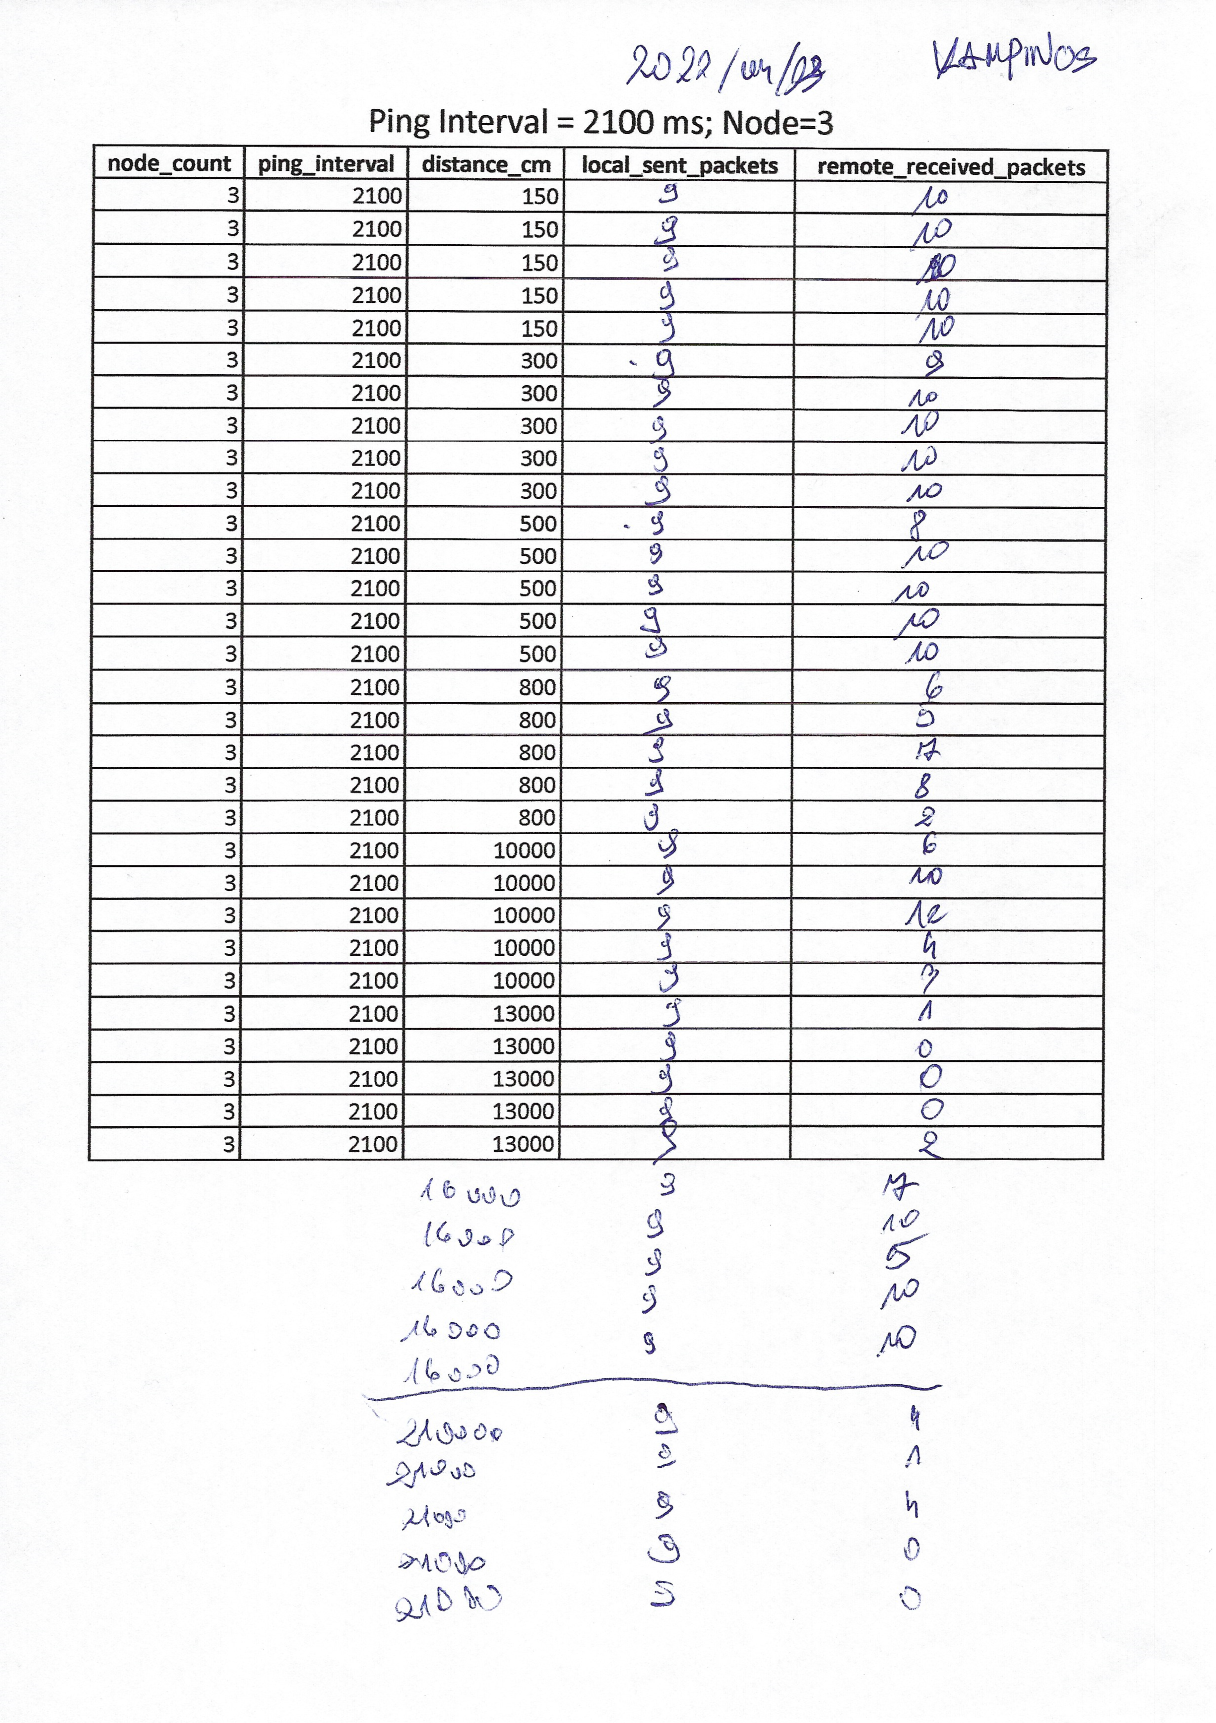 2022/04/23 KAMPINOS
Ping Interval = 2100 ms; Node=3
node_count ping_interval distance_cm local_sent_packets remote_received_packets
3 2100 150 9 10
3 2100 150 9 10
3 2100 150 9 10
3 2100 150 9 10
3 2100 150 9 10
3 2100 300 9 9
3 2100 300 9 10
3 2100 300 9 10
3 2100 300 9 10
3 2100 300 9 10
3 2100 500 9 8
3 2100 500 9 10
3 2100 500 9 10
3 2100 500 9 10
3 2100 500 9 10
3 2100 800 9 6
3 2100 800 9 9
3 2100 800 9 7
3 2100 800 9 8
3 2100 800 9 2
3 2100 10000 9 6
3 2100 10000 9 10
3 2100 10000 9 12
3 2100 10000 9 4
3 2100 10000 9 3
3 2100 13000 9 1
3 2100 13000 9 0
3 2100 13000 9 0
3 2100 13000 9 0
3 2100 13000 9 2
16000 9 7
16000 9 10
16000 9 5
16000 9 10
16000 9 10
16000
210000 9 4
21000 9 1
2100 9 4
21000 9 0
21000 9 0